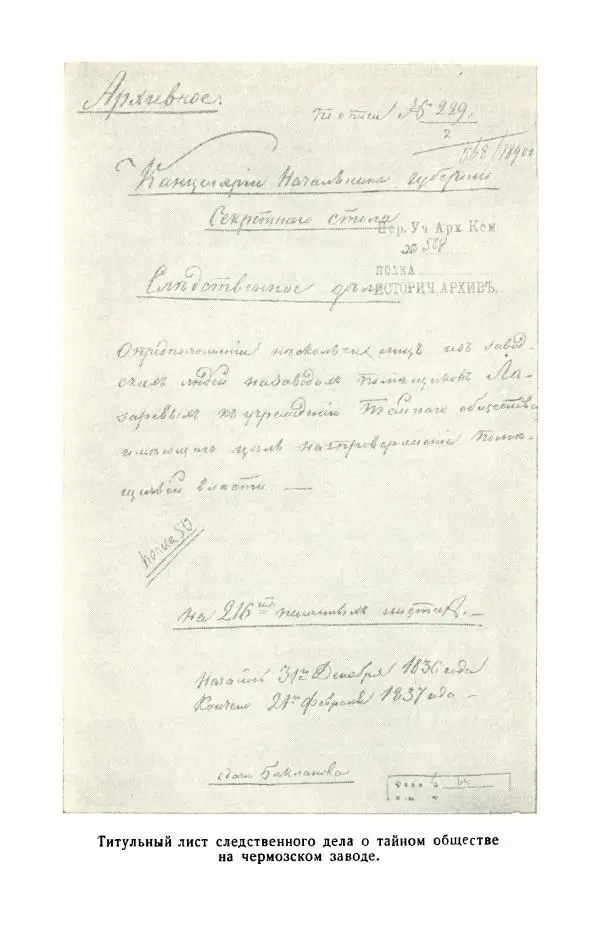 Архивное.
по описи № 229.
2
568/1890
Канцелярiи Начальника губернiи
Секретнаго стола
Пер. Уч. Арх. Ком
№ 568
ПОЛКА
ИСТОРИЧ. АРХИВЪ.
Слѣдственное дѣло
О предположенiи нѣсколькихъ лицъ изъ завод-
скихъ людей на заводахъ помѣщиковъ Ла-
заревыхъ къ учрежденiю Тайнаго общества
имѣющаго цѣль на ниспроверженiе Помѣ-
щичьей власти. —
полка 50
На 216ти писанныхъ листах. —
Начато 31го Декабря 1836 года
Кончено 21го Февраля 1837 года —
Бакланова
Титульный лист следственного дела о тайном обществе
на чермозском заводе.